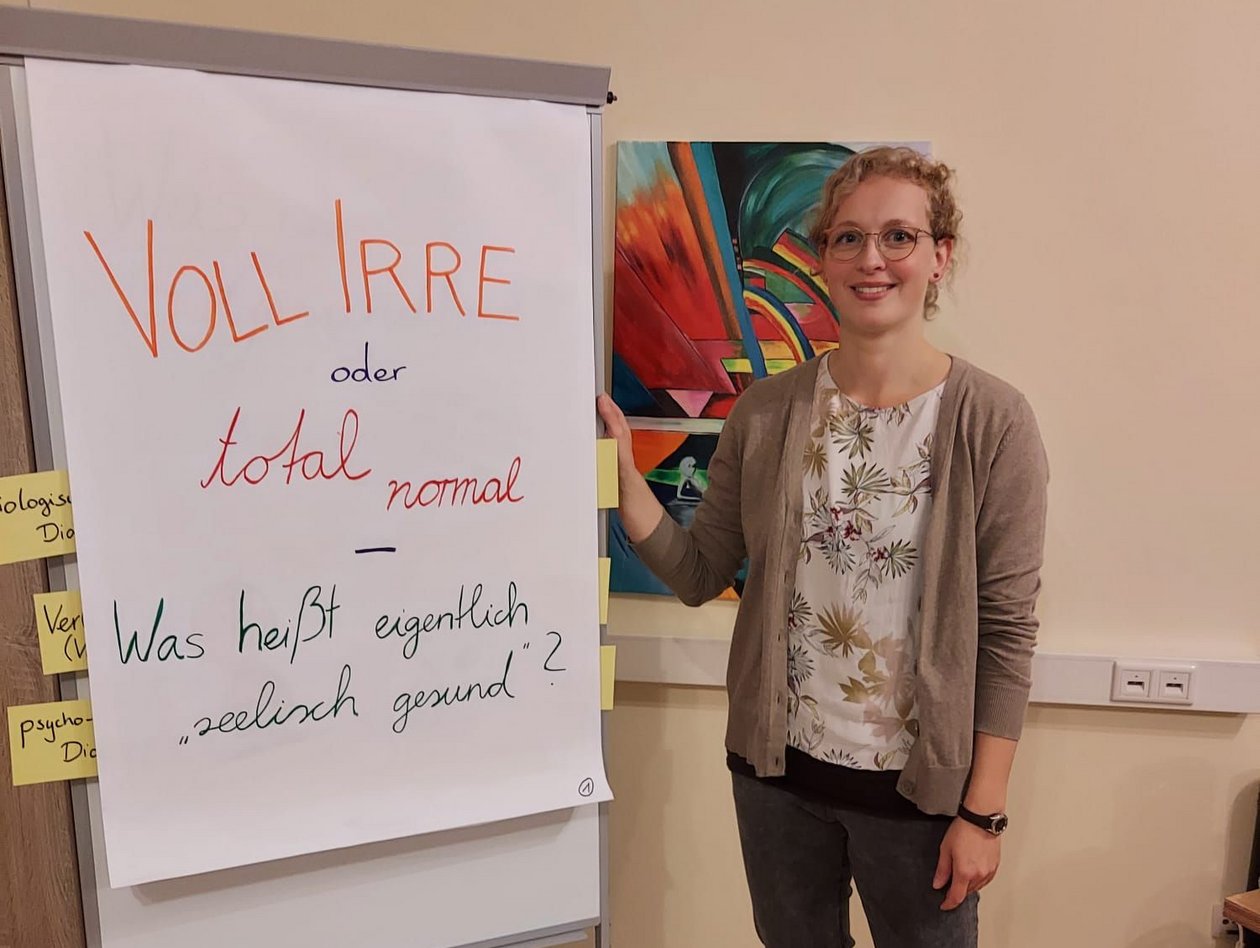 VOLL IRRE
oder
total normal
–
Was heißt eigentlich
„seelisch gesund“?
1
Dia
(V
psycho-
Dia